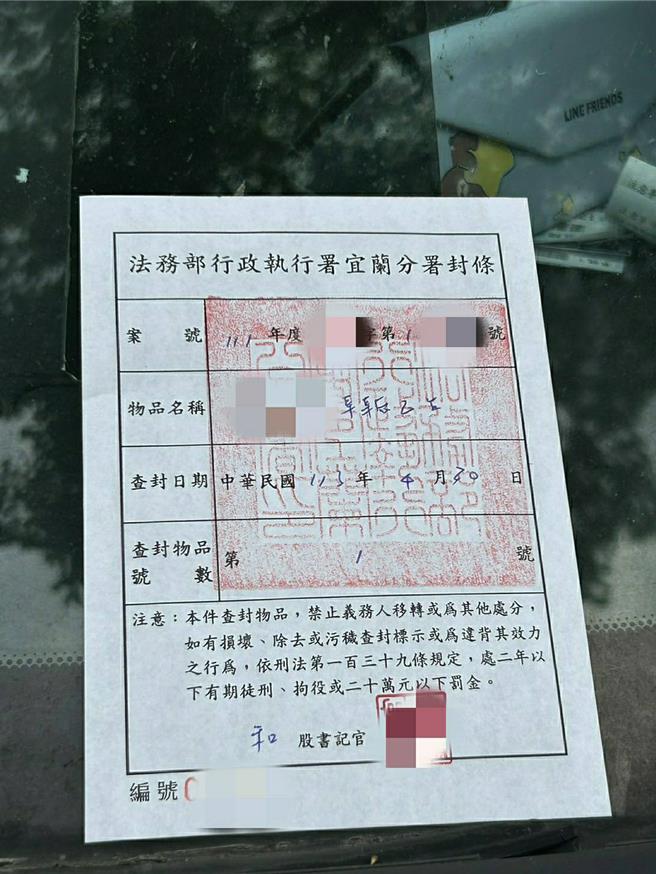 LINE FRIENDS
法務部行政執行署宜蘭分署封條
案號 111 年度 字第1 號
物品名稱
查封日期 中華民國 113 年 4 月 30 日
查封物品號數 第 1 號
注意：本件查封物品，禁止義務人移轉或為其他處分，
如有損壞、除去或污穢查封標示或為違背其效力
之行為，依刑法第一百三十九條規定，處二年以
下有期徒刑、拘役或二十萬元以下罰金。
和 股書記官
編號